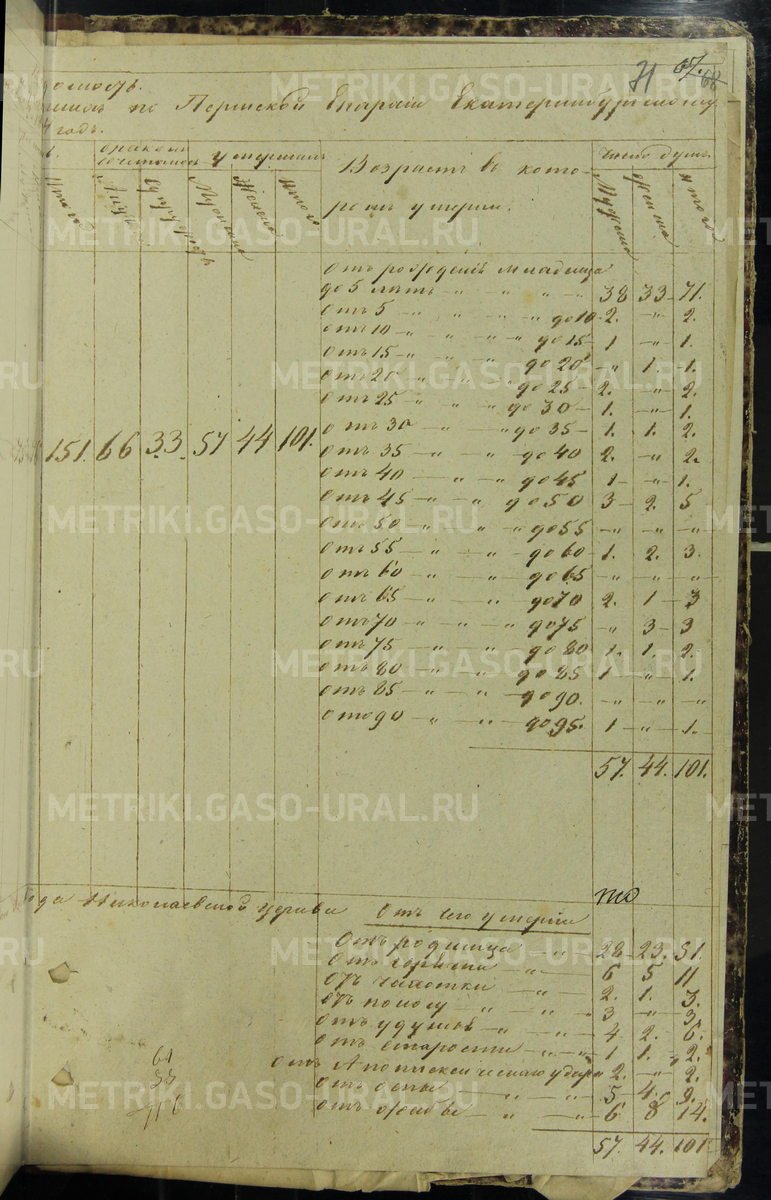 71 67. 68
домость.
по Пермской Епархіи Екатеринбургскому
годъ.
умершихъ Возрастъ въ кото- Число душъ.
Итого Мужеска Женска Итого ромъ умерли. Мужеска Женска Итого
Отъ рожденія младенца
до 5 лѣтъ - " - " - " - 38 33 - 71.
Отъ 5 - " - " - " до 10 - 2. - " - 2.
Отъ 10 - " - " - " до 15 - 1 - " - 1.
Отъ 15 - " - " - до 20 - " - 1. - 1.
Отъ 20 - " - " - до 25 - 2. - " - 2.
Отъ 25 - " - " - до 30 - 1. - " - 1.
Отъ 30 - " - " до 35 - 1. 1. 2.
151. 66 33. 57 44 101.
Отъ 35 - " - " - до 40 2. - " - 2.
Отъ 40 - " - " до 45 1 - " - 1.
Отъ 45 - " - " до 50 3 - 2. 5
Отъ 50 - " - " до 55 - " - " - "
Отъ 55 - " - " - до 60 - 1. 2. 3.
Отъ 60 - " - " - до 65 - " - " - "
Отъ 65 - " - " до 70 2. 1 - 3
Отъ 70 - " - " до 75 " 3 - 3
Отъ 75 - " - " до 80 1. 1. 2.
Отъ 80 - " - " - до 85 1 - " - 1.
Отъ 85 - " - " до 90. - " - " - "
Отъ 90 - " - " до 95. 1 - " - 1.
57. 44. 101.
Николаевской церкви Отъ чего умерли
Отъ родимца - " - 28 - 23. 51.
Отъ горячки - " - 6 5 11
Отъ чахотки - " - 2. 1. 3.
Отъ поносу - " - 3 - " - 3.
Отъ удушья - " - 4 2. 6.
Отъ старости - " - 1 1. 2.
Отъ Апоплексическаго удара 2. - " - 2.
Отъ оспы - " - 5 - 4. 9.
Отъ - " - " - 6 8 14.
57. 44. 101
METRIKI.GASO-URAL.RU